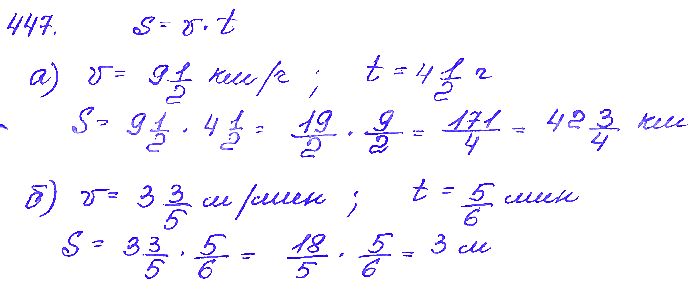 447. S = v · t
а) v = 9 1/2 км/ч ; t = 4 1/2 ч
S = 9 1/2 · 4 1/2 = 19/2 · 9/2 = 171/4 = 42 3/4 км
б) v = 3 3/5 м/мин ; t = 5/6 мин
S = 3 3/5 · 5/6 = 18/5 · 5/6 = 3 м